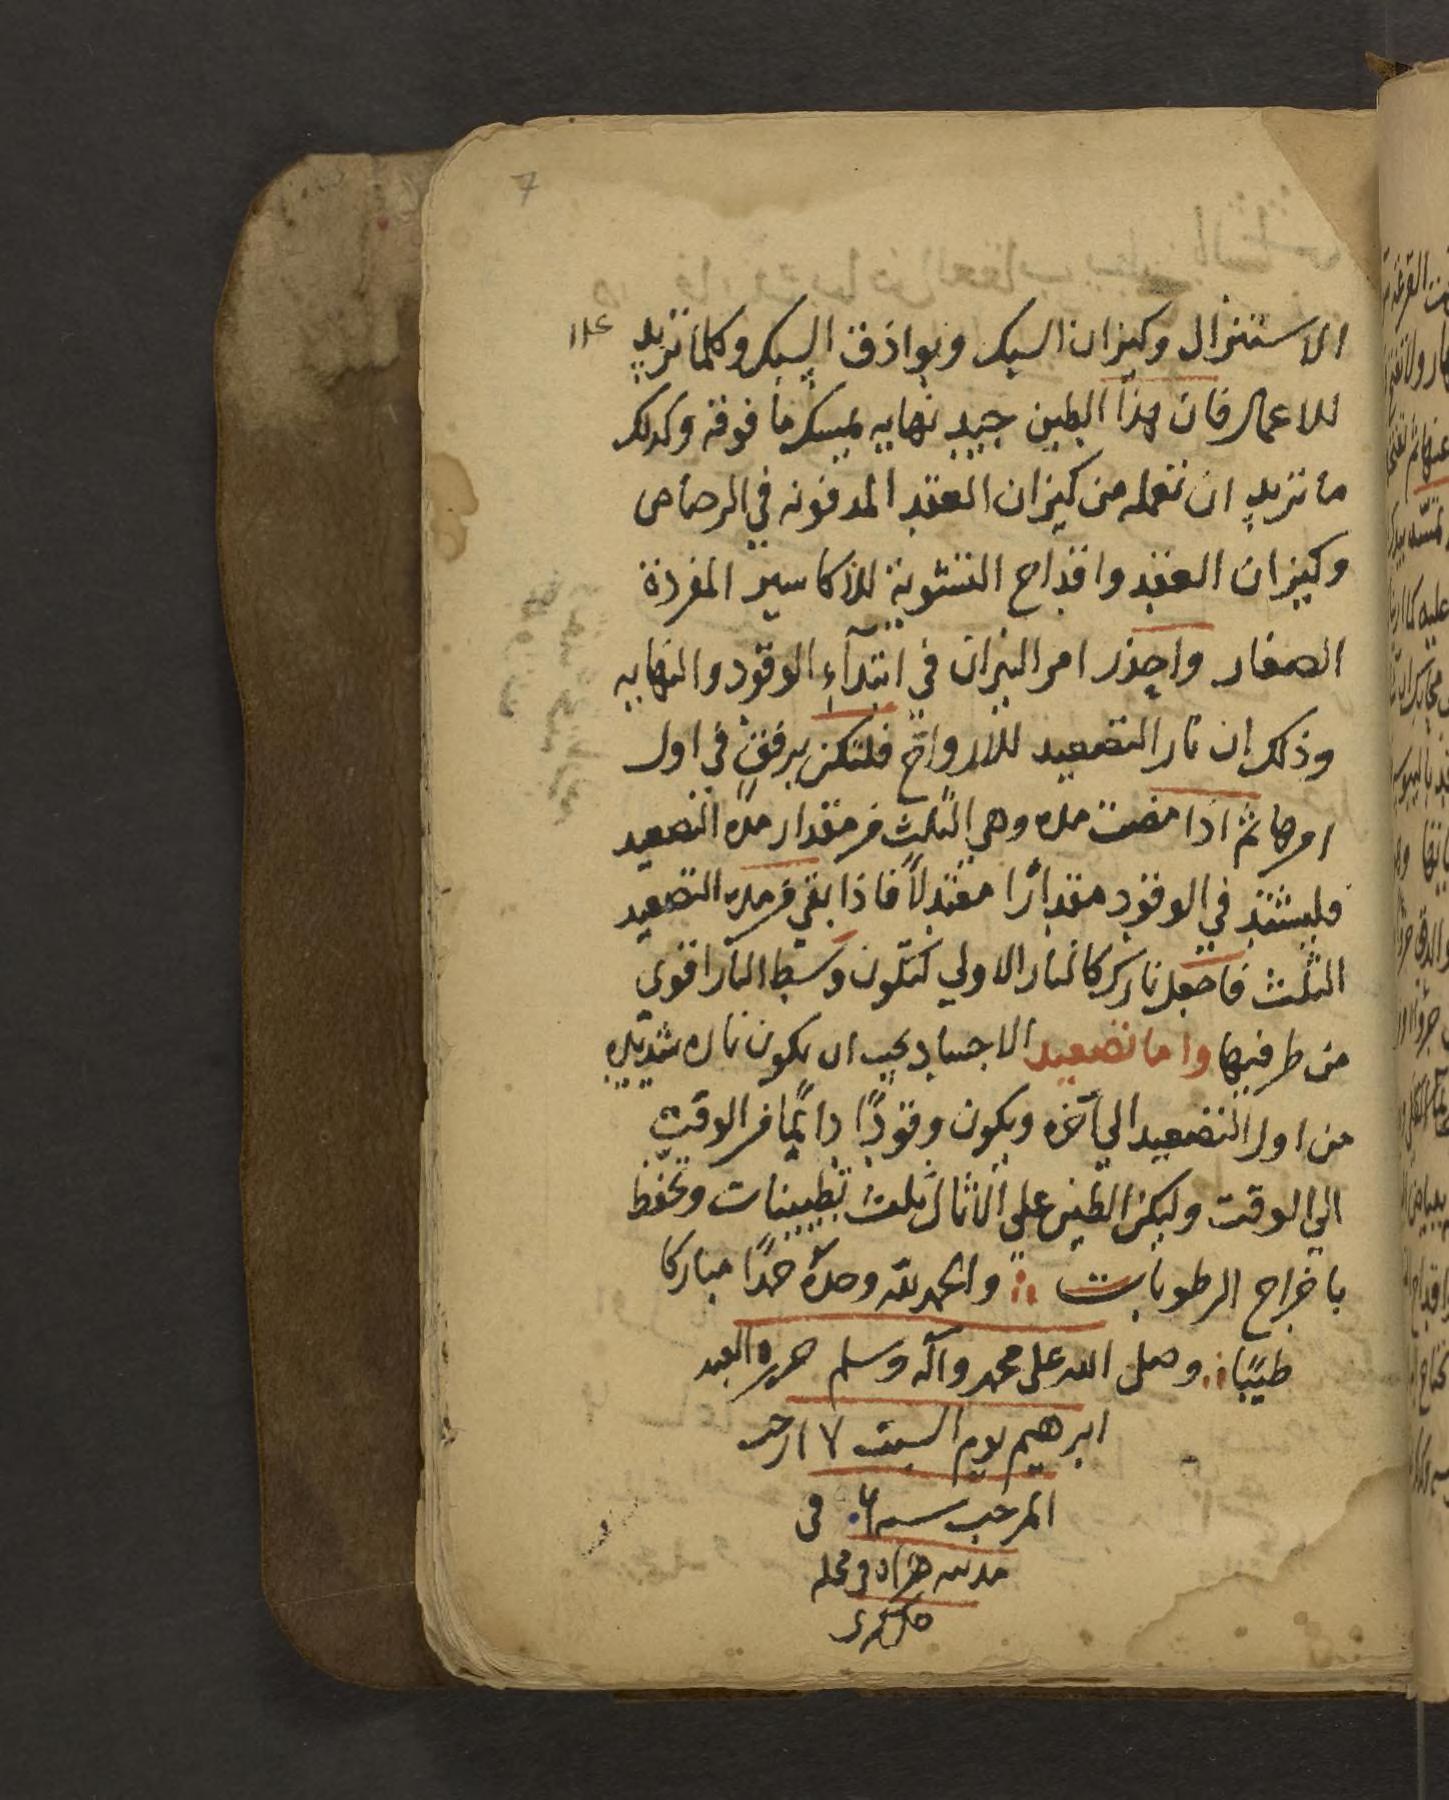 الاستنزال وكيزان السبك وبوادق السبك وكلما تريد
للاعمال فان هذا الطين جيد نهايه يمسك ما فوقه وكدلك
ما تريد ان تعمله من كيزان العقد المدفونه في الرصاص
وكيزان العقد واقداح التشوية للاكاسير المفردة
الصغار واحذر امر النيران في ابتدآء الوقود والنهايه
وذلك ان نار التصعيد للارواح فلتكن برفق في اول
امرها ثم اذا مضت مده وهي الثلث من مقدار مدة التصعيد
فليشتد في الوقود مقدارًا معتدلاً فاذا بقي من مده التصعيد
الثلث فاجعل نارك كالنار الاولي لتكون وسط النار اقوي
من طرفيها واما تصعيد الاجساد يجب ان يكون ناره شديده
من اول التصعيد الي آخره ويكون وقودًا دايمًا من الوقت
الي الوقت وليكن الطين على الاثال ثلث تطيينات وتحفظ
باخراج الرطوبات والحمد لله وحدهُ حمدًا مباركا
طيبًا وصلى الله على محمد وآله وسلم حرره العبد
ابرهيم يوم السبت ١٧ رجب
المرجب سنه في
مدينه ومحله